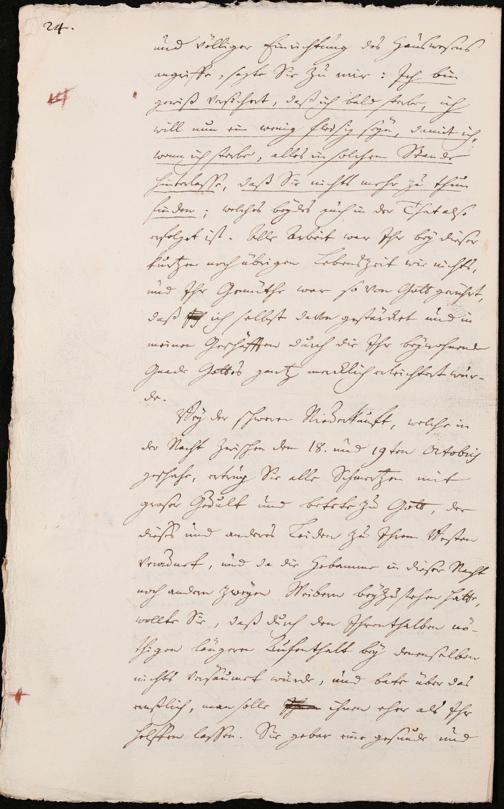 24.
und völliger Einrichtung des Hauswesens
angriffe, sagte Sie zu mir: Ich bin
gewiß versichert, daß ich bald sterbe, ich
will nun ein wenig fleißig seyn, damit ich,
wenn ich sterbe, alles in solchem Stande
hinterlasse, daß Sie nichts mehr zu thun
finden; welches beydes auch in der That also
erfolget ist. Alle Arbeit war Ihr bey dieser
kurtzen noch übrigen Lebenszeit wie nichts,
und Ihr Gemüthe war so von Gott gerührt,
daß ich selbst davon gestärcket und in
meinen Geschäfften durch die Ihr beywohnende
Gnade Gottes gantz mercklich erleichtert wur-
de.
Bey der schweren Niederkunft, welche in
der Nacht zwischen den 18. und 19ten Octobris
geschahe, ertrug Sie alle Schmertzen mit
großer Gedult und betete zu Gott, der
dieses und anderes Leiden zu Ihrem Besten
, und da die Hebamme in dieser Nacht
noch andern zweyen Weibern beyzustehen hatte,
wollte Sie, daß durch den Ihrenthalben nö-
thigen längern Aufenthalt bey denenselben
nichts versäumet würde, und bate über das
ernstlich, man solle ihnen eher als Ihr
helffen lassen. Sie gebar eine gesunde und